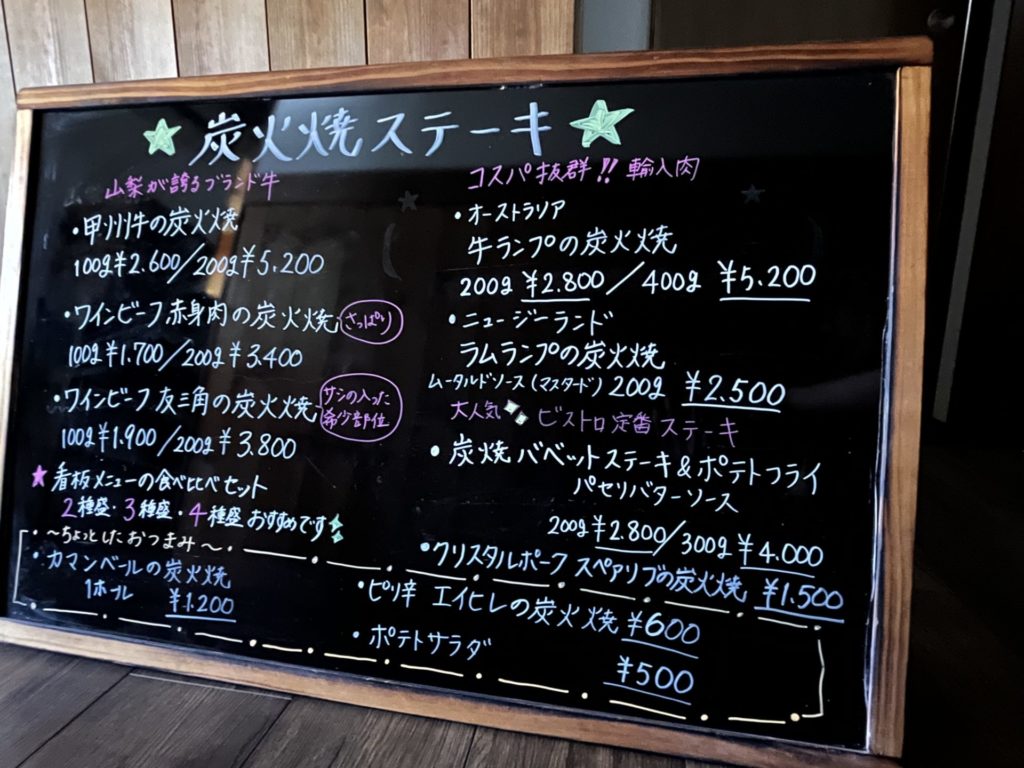 炭火焼ステーキ
山梨が誇るブランド牛
・甲州牛の炭火焼
100g¥2.600/200g¥5.200
・ワインビーフ赤身肉の炭火焼 さっぱり
100g¥1.700/200g¥3.400
・ワインビーフ友三角の炭火焼 サシの入った
希少部位
100g¥1.900/200g¥3.800
★看板メニューの食べ比べセット
2種盛・3種盛・4種盛おすすめです
コスパ抜群!! 輸入肉
・オーストラリア
牛ランプの炭火焼
200g ¥2.800/400g ¥5.200
・ニュージーランド
ラムランプの炭火焼
ムータルドソース(マスタード) 200g ¥2.500
大人気 ビストロ定番ステーキ
・炭焼バベットステーキ&ポテトフライ
パセリバターソース
200g¥2.800/300g¥4.000
・クリスタルポーク スペアリブの炭火焼 ¥1.500
~ちょっとしたおつまみ~
・カマンベールの炭火焼
1ホール ¥1.200
・ピリ辛 エイヒレの炭火焼 ¥600
・ポテトサラダ ¥500